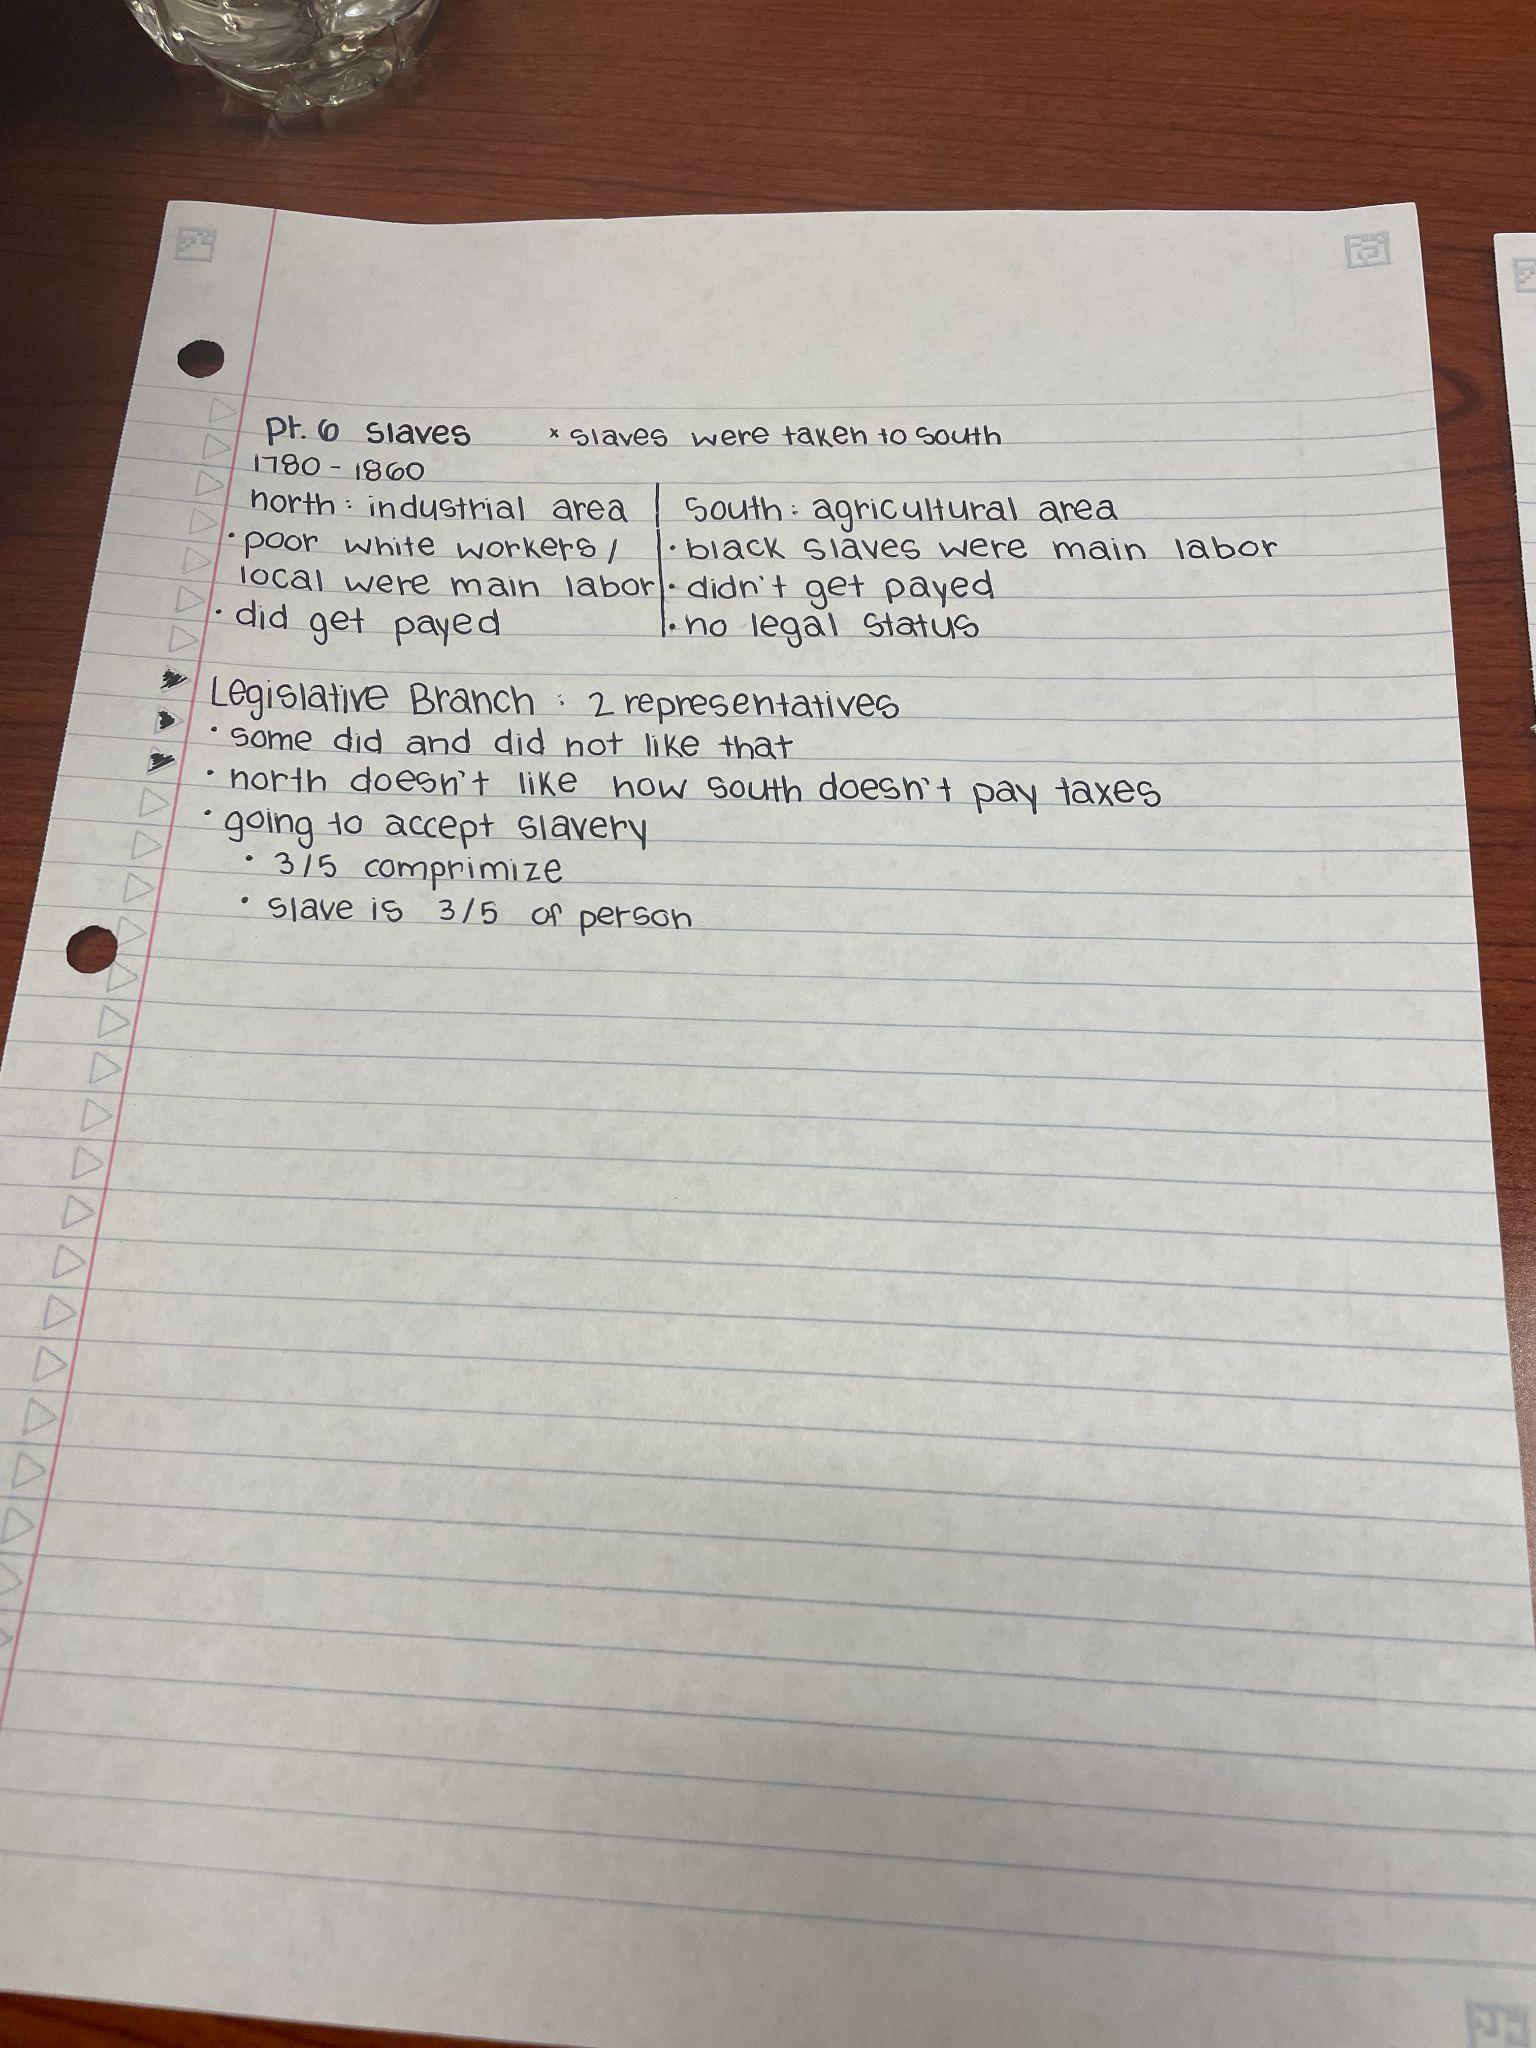 Pt. 6 Slaves × slaves were taken to South
1780 - 1860
north: industrial area | South: agricultural area
• poor white workers/ | • black slaves were main labor
local were main labor | • didn't get payed
• did get payed | • no legal status
Legislative Branch : 2 representatives
• some did and did not like that
• north doesn't like how south doesn't pay taxes
• going to accept slavery
• 3/5 comprimize
• slave is 3/5 of person